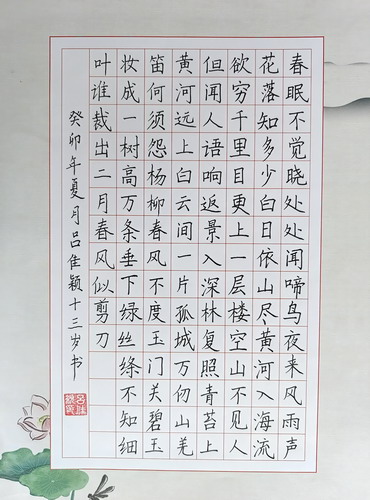 春眠不觉晓处处闻啼鸟夜来风雨声
花落知多少白日依山尽黄河入海流
欲穷千里目更上一层楼空山不见人
但闻人语响返景入深林复照青苔上
黄河远上白云间一片孤城万仞山羌
笛何须怨杨柳春风不度玉门关碧玉
妆成一树高万条垂下绿丝绦不知细
叶谁裁出二月春风似剪刀
癸卯年夏月吕佳颖十三岁书